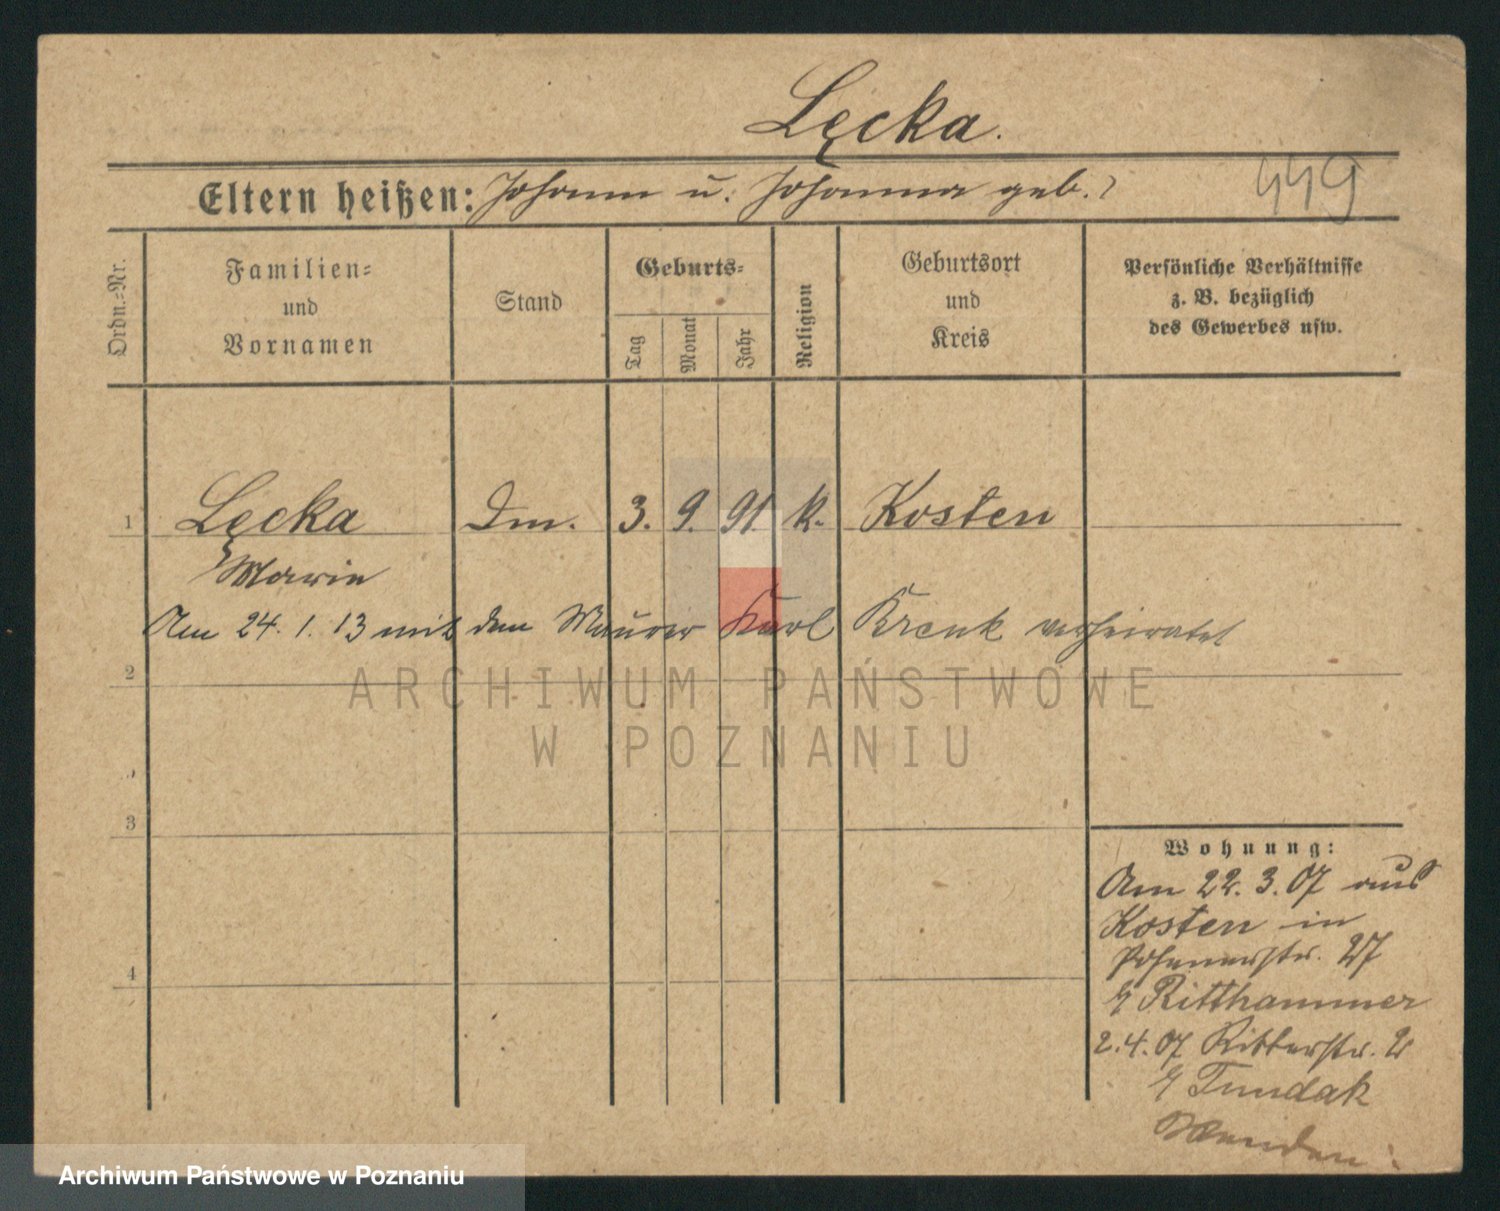 Lęcka.
Eltern heißen: Johann u. Johanna geb. ?
449
Ordn.=Nr.
Familien=
und
Vornamen
Stand
Geburts=
Tag
Monat
Jahr
Religion
Geburtsort
und
Kreis
Persönliche Verhältnisse
z. B. bezüglich
des Gewerbes usw.
1 Lęcka Dm. 3. 9. 91. k. Kosten
Marie
Am 24. 1. 13 mit dem Maurer Karl Krenk verheiratet
2
ARCHIWUM PAŃSTWOWE
W POZNANIU
3
Wohnung:
Am 22. 3. 07 aus
Kosten in
Posenerstr. 27
b/ Ritthammer
2. 4. 07 Ritterstr. 2
b/ Tundak
Wenden
4
Archiwum Państwowe w Poznaniu